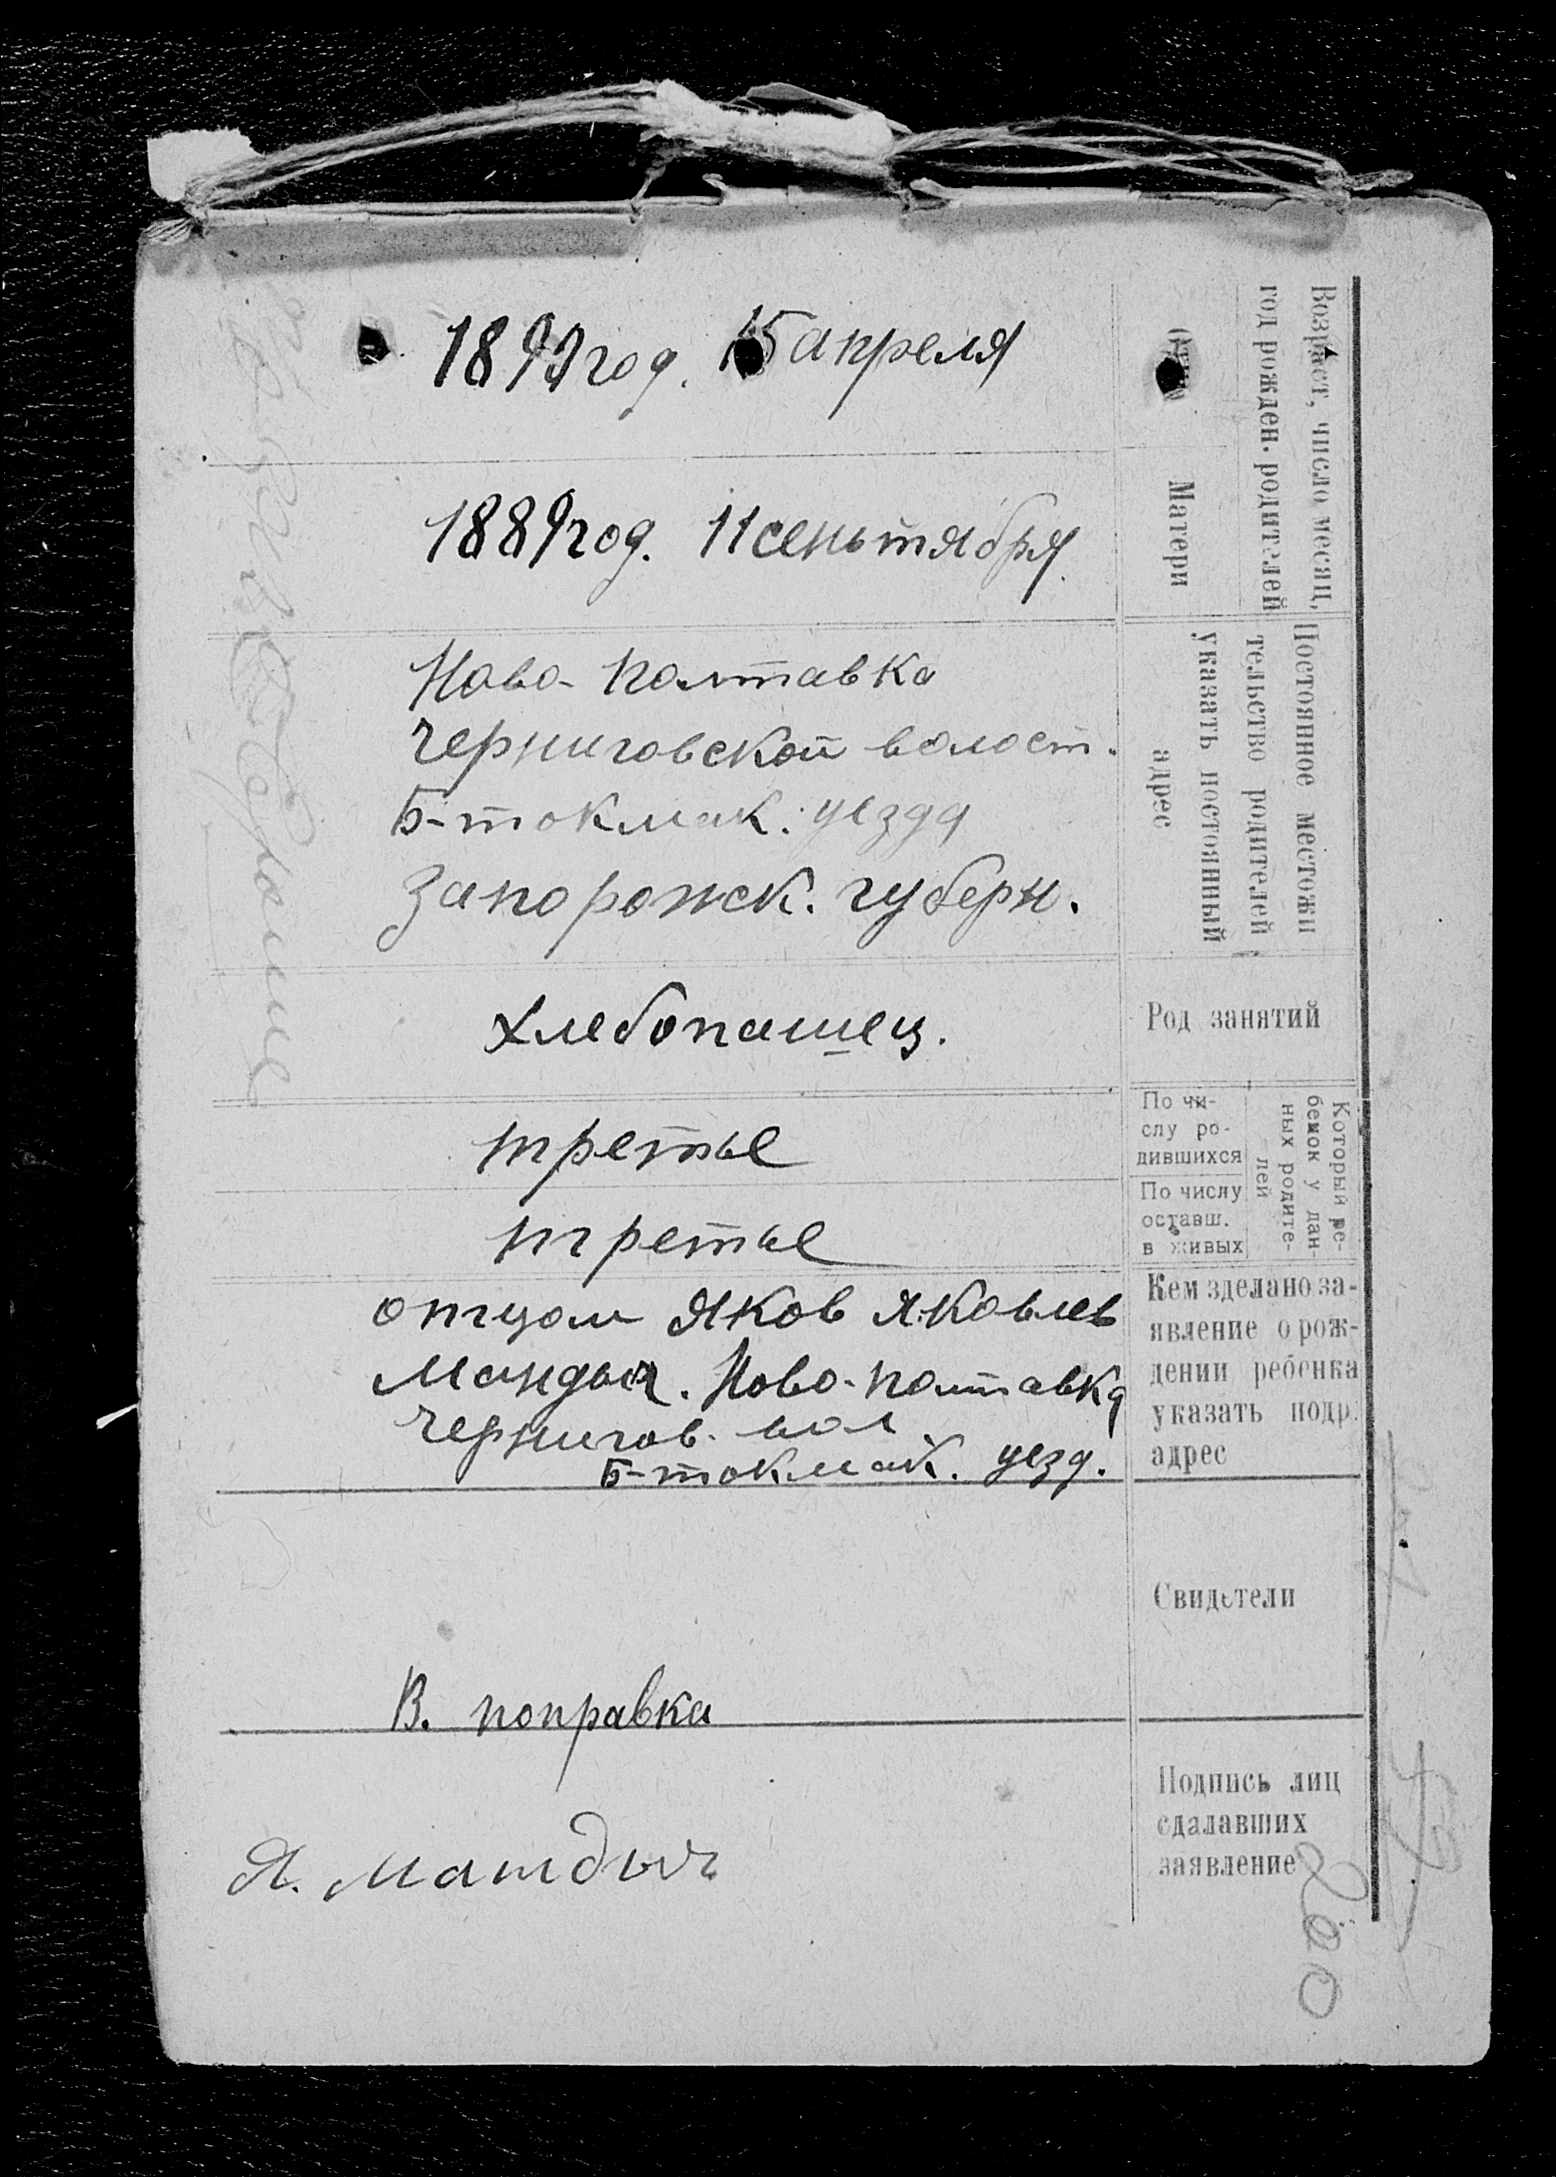 Возраст, число, месяц,
год рожден. родителей
1899 год. 15 апреля
Матери
1889 год. 11 сеньтября
Постоянное местожи
тельство родителей
указать постоянный
адрес
Ново-Полтавка
Черниговской волост.
Б-токмак. уезда
Запорожск. губерн.
Род занятий
Хлебопашец.
Который ре-
бенок у дан-
ных родите-
лей
По чи-
слу ро-
дившихся
третье
По числу
оставш.
в живых
третье
Кем зделано за-
явление о рож-
дении ребенка
указать подр.
адрес
отцом Яков Яковлев
Мандыч. Ново-Полтавка
Чернигов. вол.
Б-токмак. уезд.
Свидетели
В. Поправка
Подпись лиц
сдалавших
заявление
Я. Мандыч
200